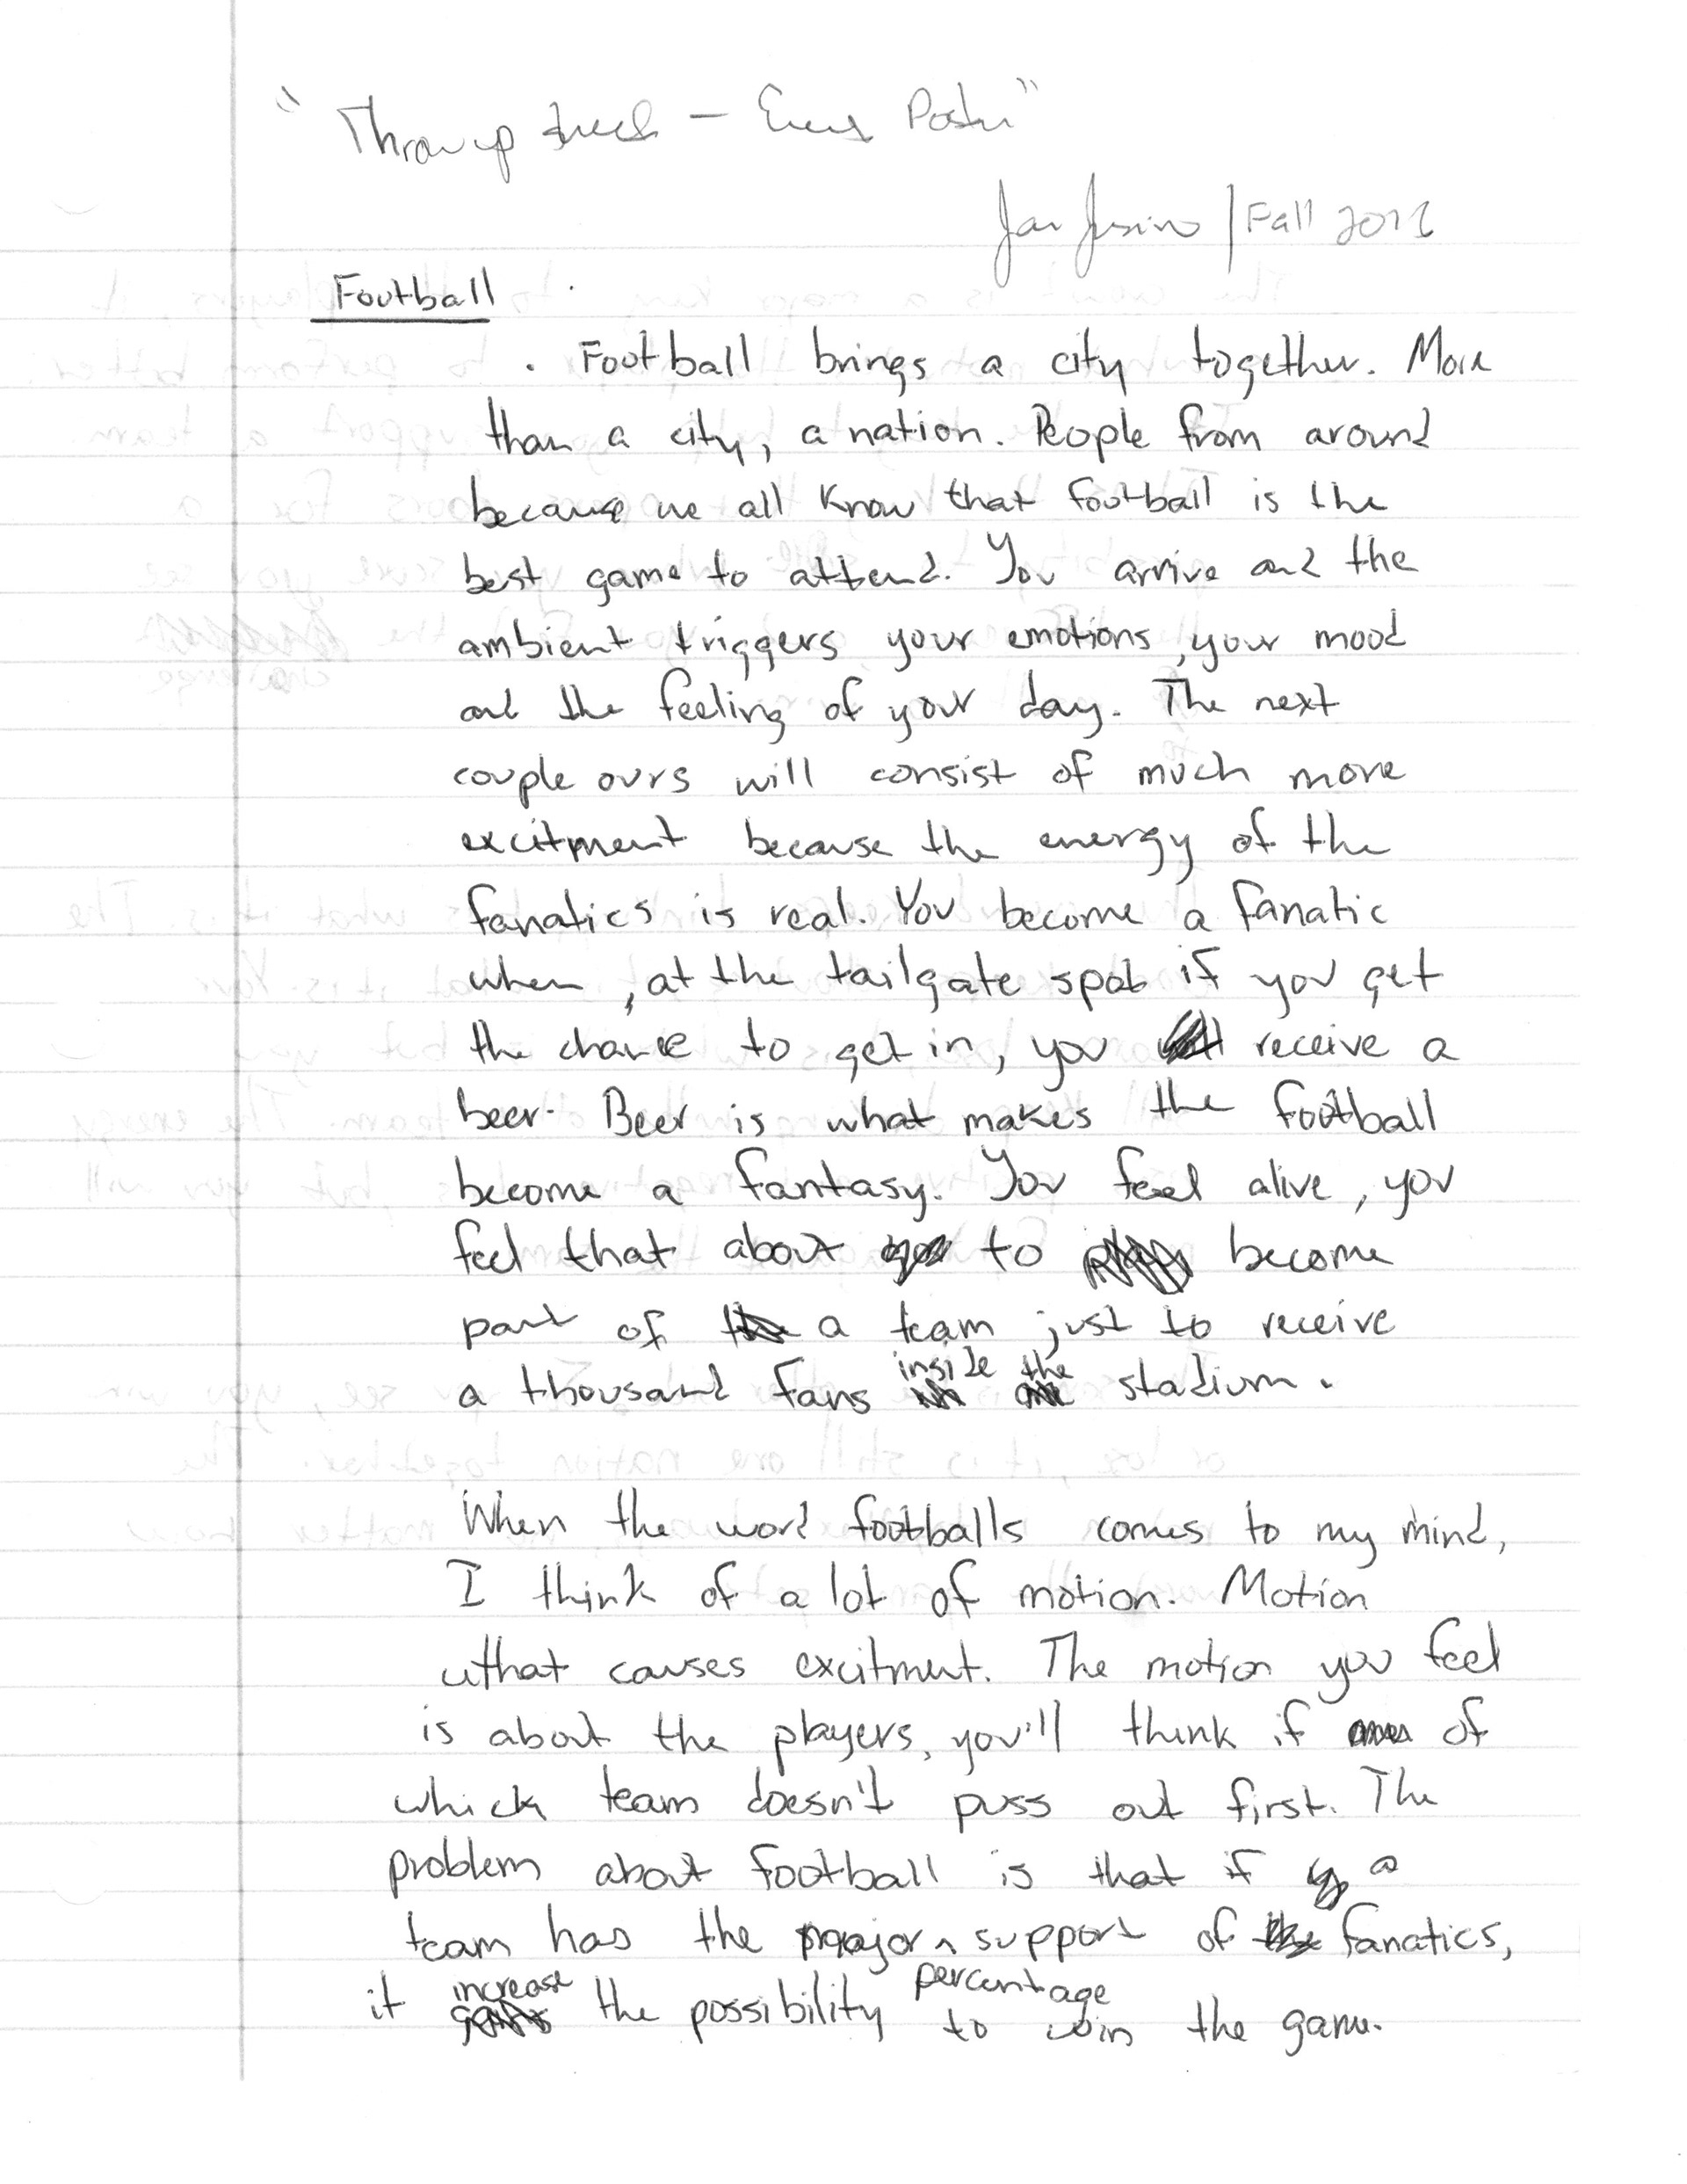 "Throw up sheet – Event Poster"
Jan Jusino | Fall 2011
Football
. Football brings a city together. More
than a city, a nation. People from around
because we all know that football is the
best game to attend. You arrive and the
ambient triggers your emotions, your mood
and the feeling of your day. The next
couple ours will consist of much more
excitment because the energy of the
fanatics is real. You become a fanatic
when, at the tailgate spot if you get
the chance to get in, you receive a
beer. Beer is what makes the football
become a fantasy. You feel alive, you
feel that about to become
part of a team just to receive
a thousand fans inside the stadium.
When the word footballs comes to my mind,
I think of a lot of motion. Motion
that causes excitment. The motion you feel
is about the players, you'll think if of
which team doesn't puss out first. The
problem about football is that if a
team has the major support of fanatics,
it increase the possibility percentage to win the game.